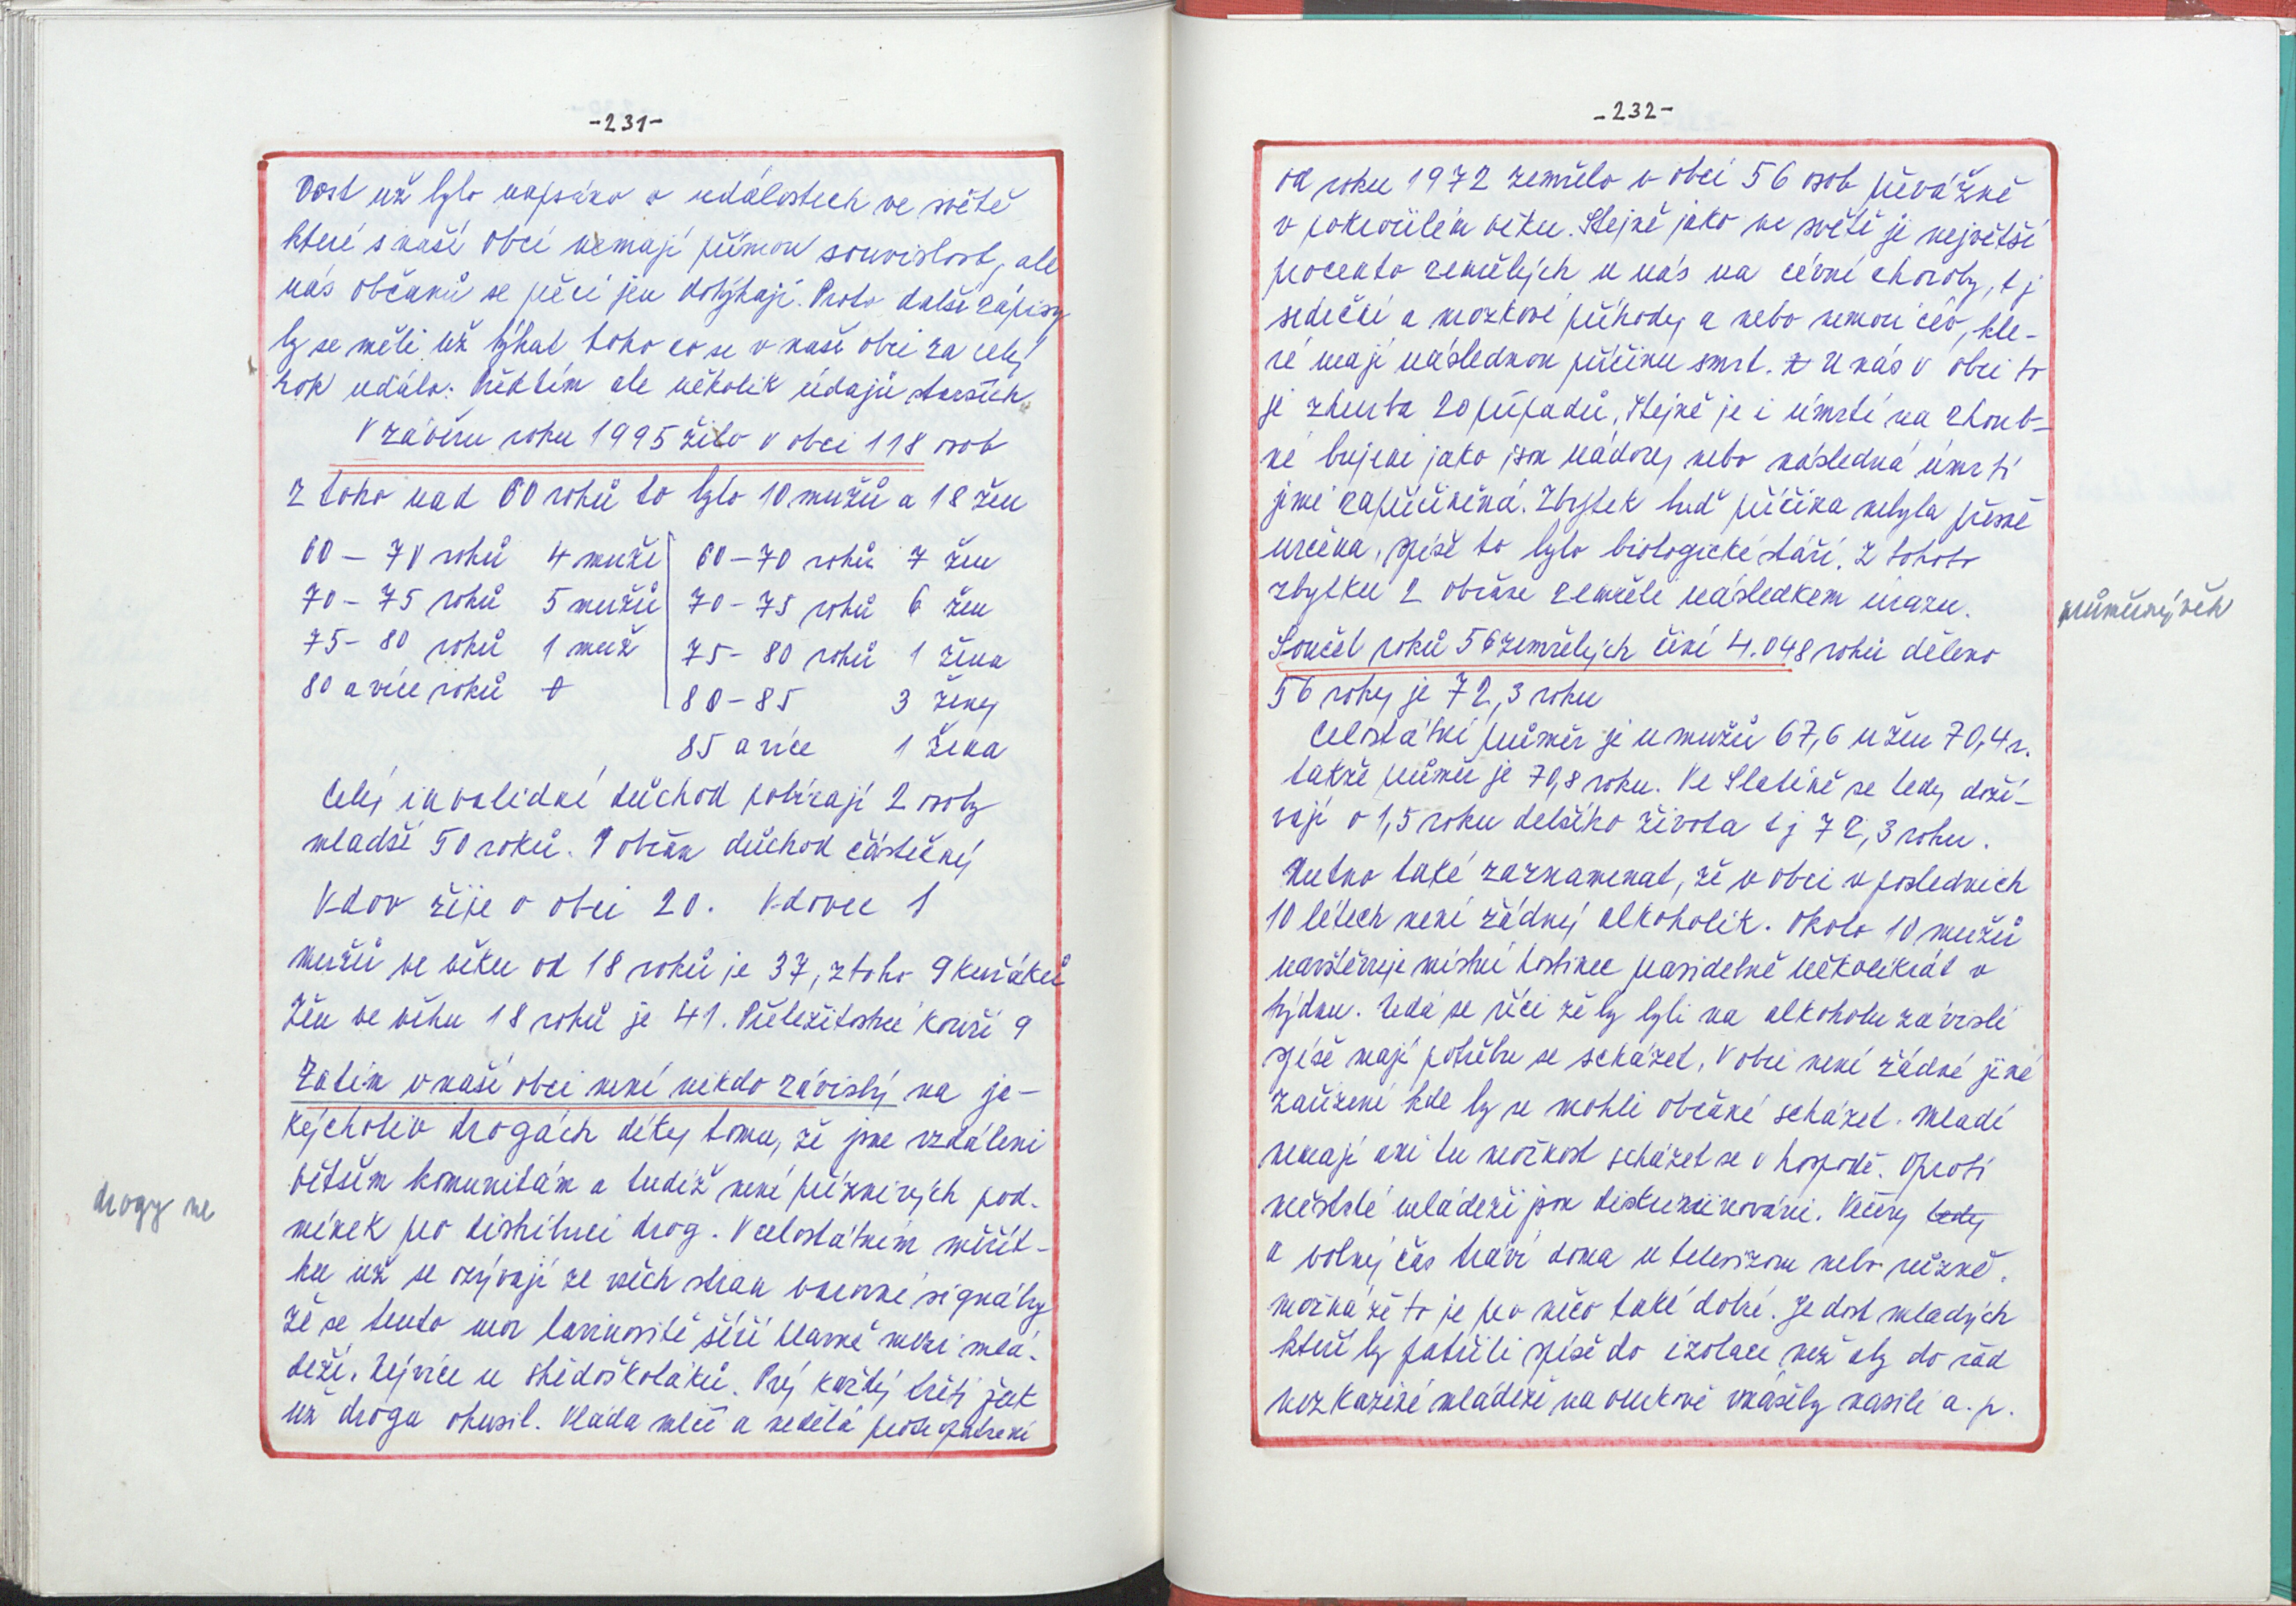 -231-
Dost už bylo napsáno o událostech ve světě
které s naší obcí nemají přímou souvislost, ale
nás občanů se přeci jen dotýkají. Proto další zápisy
by se měli už týkat toho co se v naší obci za celý
rok událo. Předtím ale několik údajů starších.
V závěru roku 1995 žilo v obci 118 osob
z toho nad 60 roků to bylo 10 mužů a 18 žen
60 – 70 roků 4 muži 60 – 70 roků 7 žen
70 – 75 roků 5 mužů 70 – 75 roků 6 žen
75 – 80 roků 1 muž 75 – 80 roků 1 žena
80 a více roků 0 80 – 85 3 ženy
85 a více 1 žena
Celý invalidní důchod pobírají 2 osoby
mladší 50 roků. 1 občan důchod částečný
Vdov žije v obci 20. Vdovec 1
mužů ve věku od 18 roků je 37, z toho 9 kuřáků
Žen ve věku 18 roků je 41. Příležitostně kouří 9
Zatím v naší obci není nikdo závislý na ja-
kýcholiv drogách díky tomu, že jsme vzdáleni
větším komunitám a tudíž není příznivých pod-
mínek pro distribuci drog. V celostátním měřít-
ku už se ozývají ze všech stran varovné signály
že se tento mor lavinovitě šíří hlavně mezi mlá-
deží. Nejvíce u středoškoláků. Prý každý třetí žák
už drogu okusil. Vláda mlčí a nedělá proti opatření
drogy ne
-232-
od roku 1972 zemřelo v obci 56 osob převážně
v pokročilém věku. Stejně jako ve světě je největší
procento zemřelých u nás na cévní choroby, t j
srdeční a mozkové příhody a nebo nemoci cév, kte-
ré mají následnou příčinu smrt. U nás v obci to
je zhruba 20 případů. Stejně je i úmrtí na zhoub-
né bujení jako jsou nádory nebo následná úmrtí
jimi zapříčiněná. Zbytek buď příčina nebyla přesně
určena, spíše to bylo biologické stáří. Z tohoto
zbytku 2 občané zemřeli následkem úrazu.
Součet roků 56 zemřelých činí 4.048 roků děleno
56 roky je 72,3 roku
Celostátní průměr je u mužů 67,6 u žen 70,4 r.
takže průměr je 70,8 roku. Ve Slatině se tedy doží-
vají o 1,5 roku delšího života t j 72,3 roku.
Nutno také zaznamenat, že v obci v posledních
10 létech není žádný alkoholik. Okolo 10 mužů
navštěvuje místní hostinec pravidelně několikrát v
týdnu. Nedá se říci že by byli na alkoholu závislí
spíše mají potřebu se scházet. V obci není žádné jiné
zařízení kde by se mohli občané scházet. Mladí
nemají ani tu možnost scházet se v hospodě. Oproti
městské mládeži jsou diskriminováni. Večery tedy
a volný čas tráví doma u televizoru nebo různě.
možná že to je pro něco také dobré. Je dost mladých
kteří by patřili spíše do izolace než aby do řad
nezkažené mládeže na venkově vnášely násilí a. p.
průměrný věk